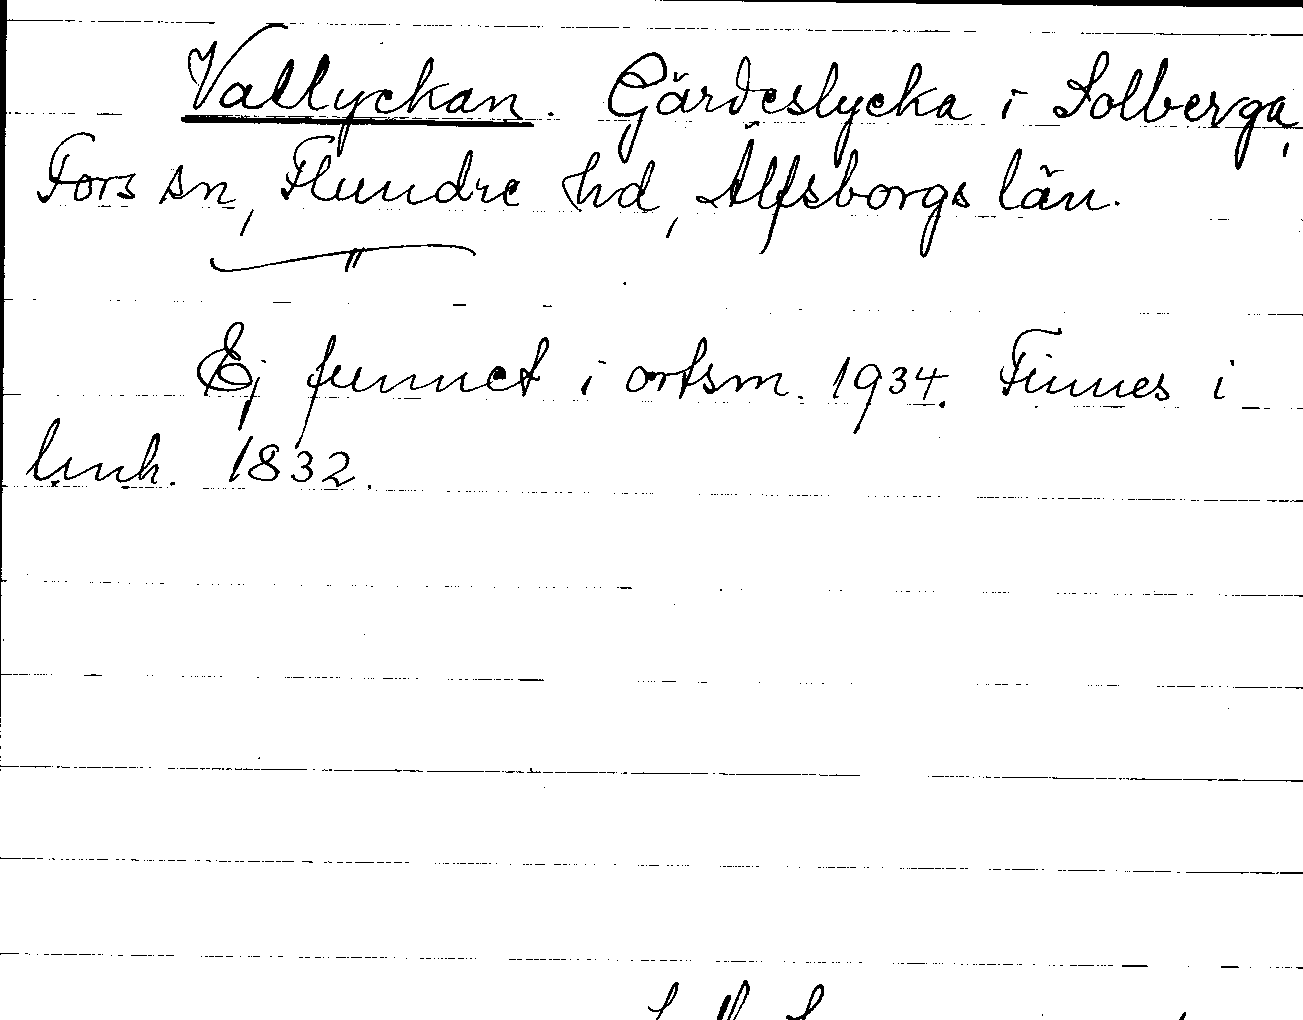 Vallyckan. Gärdeslycka i Solberga,
Fors sn, Flundre hd, Älfsborgs län.
Ej funnet i ortsm. 1934. Finnes i
lmh. 1832.